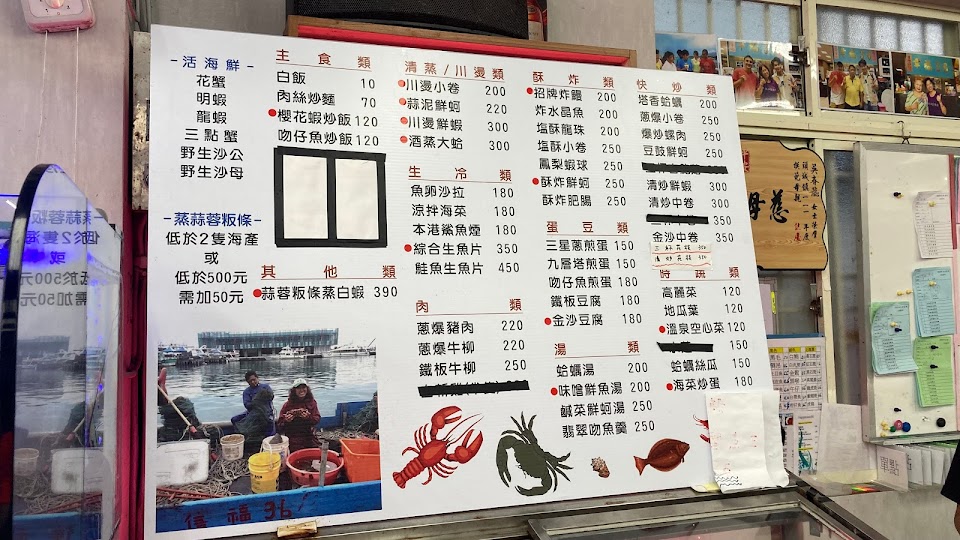 -活海鮮-
花蟹
明蝦
龍蝦
三點蟹
野生沙公
野生沙母
-蒸蒜蓉粄條-
低於2隻海產
或
低於500元
需加50元
主食類
白飯 10
肉絲炒麵 70
櫻花蝦炒飯 120
吻仔魚炒飯 120
其他類
蒜蓉粄條蒸白蝦 390
清蒸/川燙類
川燙小卷 200
蒜泥鮮蚵 220
川燙鮮蝦 300
酒蒸大蛤 300
生冷類
魚卵沙拉 180
涼拌海菜 180
本港鯊魚煙 180
綜合生魚片 350
鮭魚生魚片 450
肉類
蔥爆豬肉 220
蔥爆牛柳 220
鐵板牛柳 250
酥炸類
招牌炸饅 200
炸水晶魚 200
塩酥龍珠 200
塩酥小卷 250
鳳梨蝦球 250
酥炸鮮蚵 250
酥炸肥腸 250
蛋豆類
三星蔥煎蛋 150
九層塔煎蛋 150
吻仔魚煎蛋 180
鐵板豆腐 180
金沙豆腐 180
湯類
蛤蠣湯 200
味噌鮮魚湯 200
鹹菜鮮蚵湯 250
翡翠吻魚羹 250
快炒類
塔香蛤蠣 200
蔥爆小卷 250
爆炒螺肉 250
豆鼓鮮蚵 250
清炒鮮蝦 300
清炒中卷 350
350
金沙中卷 350
時蔬類
高麗菜 120
地瓜葉 120
溫泉空心菜 120
150
蛤蠣絲瓜 150
海菜炒蛋 180
蒸蒜蓉粄
低於2隻海
或
低於500
需加50
慈母
單點